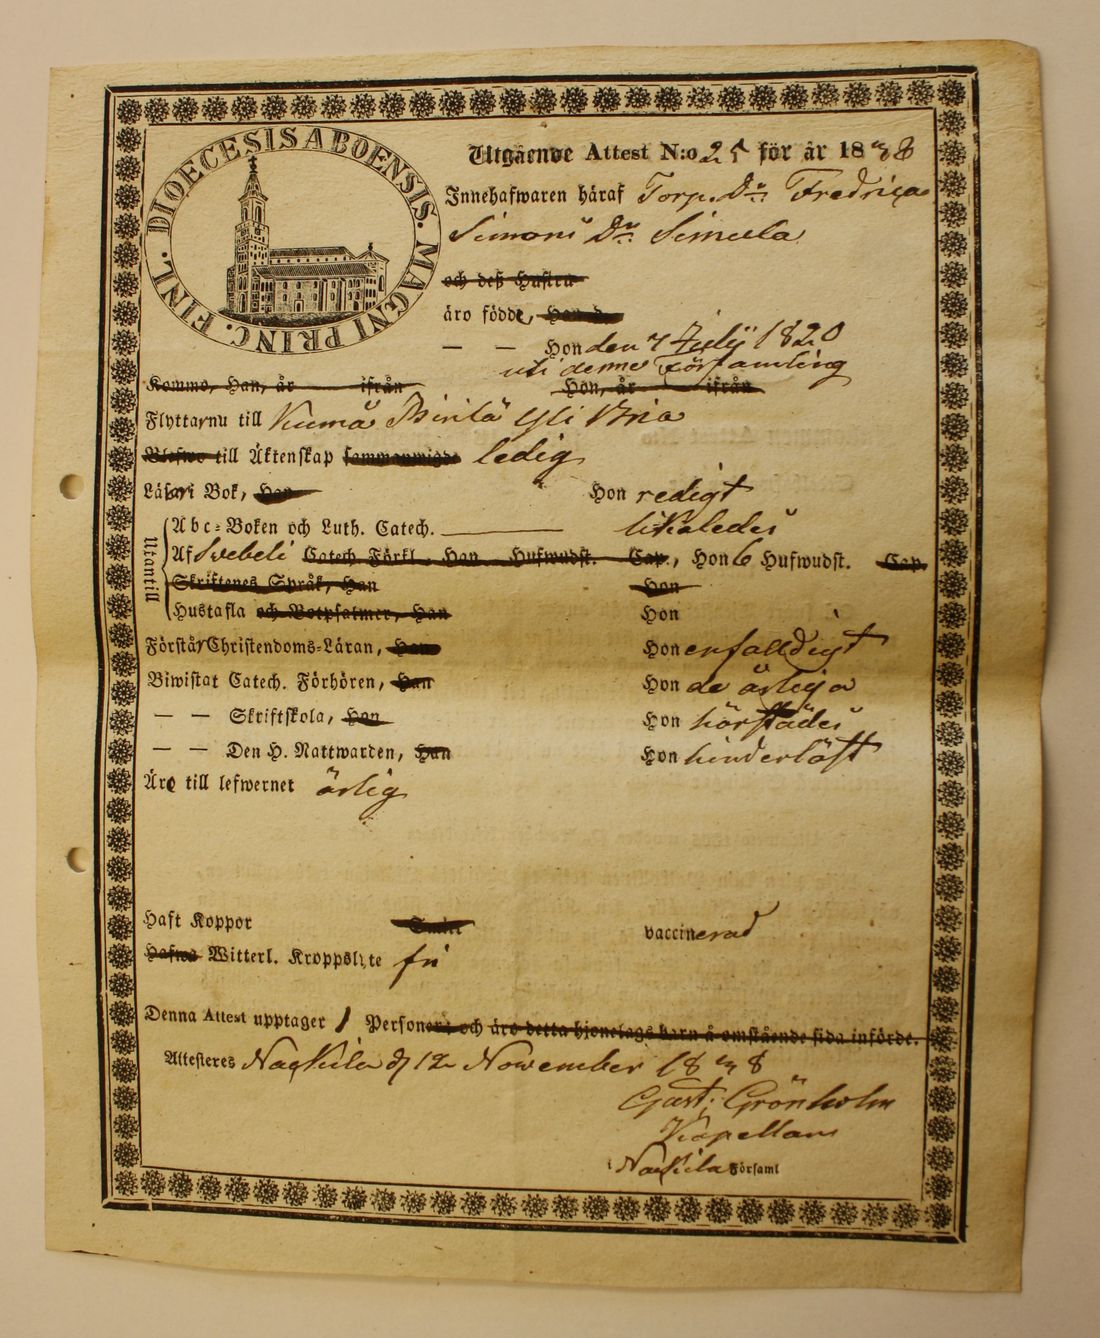 DIOECESIS ABOENSIS. MAGNI PRINC. FINL.
Utgående Attest N:o 25 för år 1838
Innehafwaren häraf Torp. Dr. Fredrica
Simons Dr. Simula
och deß Hustru
äro födde, Han d
— — Hon den 7 Julii 1820
uti denne Församling
Kommo, Han, år ifrån Hon, år ifrån
Flyttar nu till Kumå
Blefwo till Äktenskap sammanwigde ledig
Läser i Bok, Han Hon redigt
Utantill
Abc-Boken och Luth. Catech. likaledes
Af Svebeli Catech. Förkl. Han Hufwudst. Cap., Hon 6 Hufwudst. Cap.
Skriftenes Språk, Han Hon
Hustafla och Botpsalmer, Han Hon
Förstår Christendoms-Läran, Han Hon enfalldigt
Biwistat Catech. Förhören, Han Hon de årliga
— — Skriftskola, Han Hon härstädes
— — Den H. Nattwarden, Han Hon hinderlöst
Äro till lefwernet ärlig
Haft Koppor vaccinerad
Hafwa Witterl. Kroppslyte fri
Denna Attest upptager 1 Personer och äro detta hjonelags barn å omstående sida införde.
Attesteres Nackila d 12 November 1838
Gust. Grönholm
Kapellan
i Nackila Församl